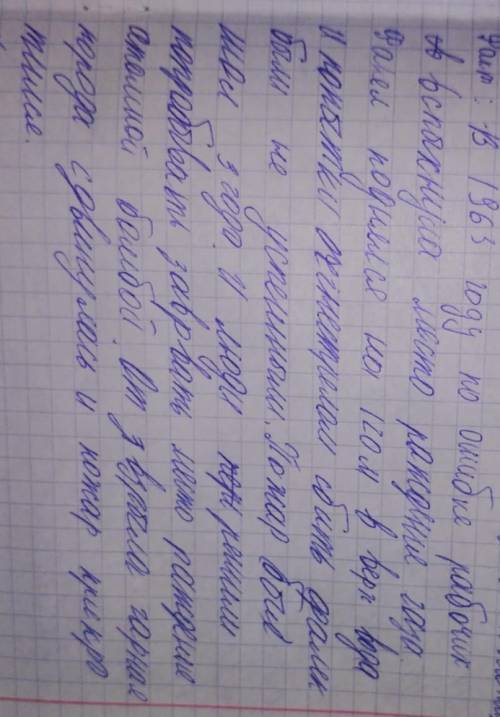 Факт: В 1963 году по ошибке рабочих
вспыхнула место рождение газа.
Факел поднялся на 120м в верх вра
И попытки огнетушили сбить факел
были не успешными. Пожар был
шел 3 года. И люди решили
попробовать завзрвать место рождение
атомной бомбой. От взрыва горная
порода сдвинулась и пожар прикра
тился.